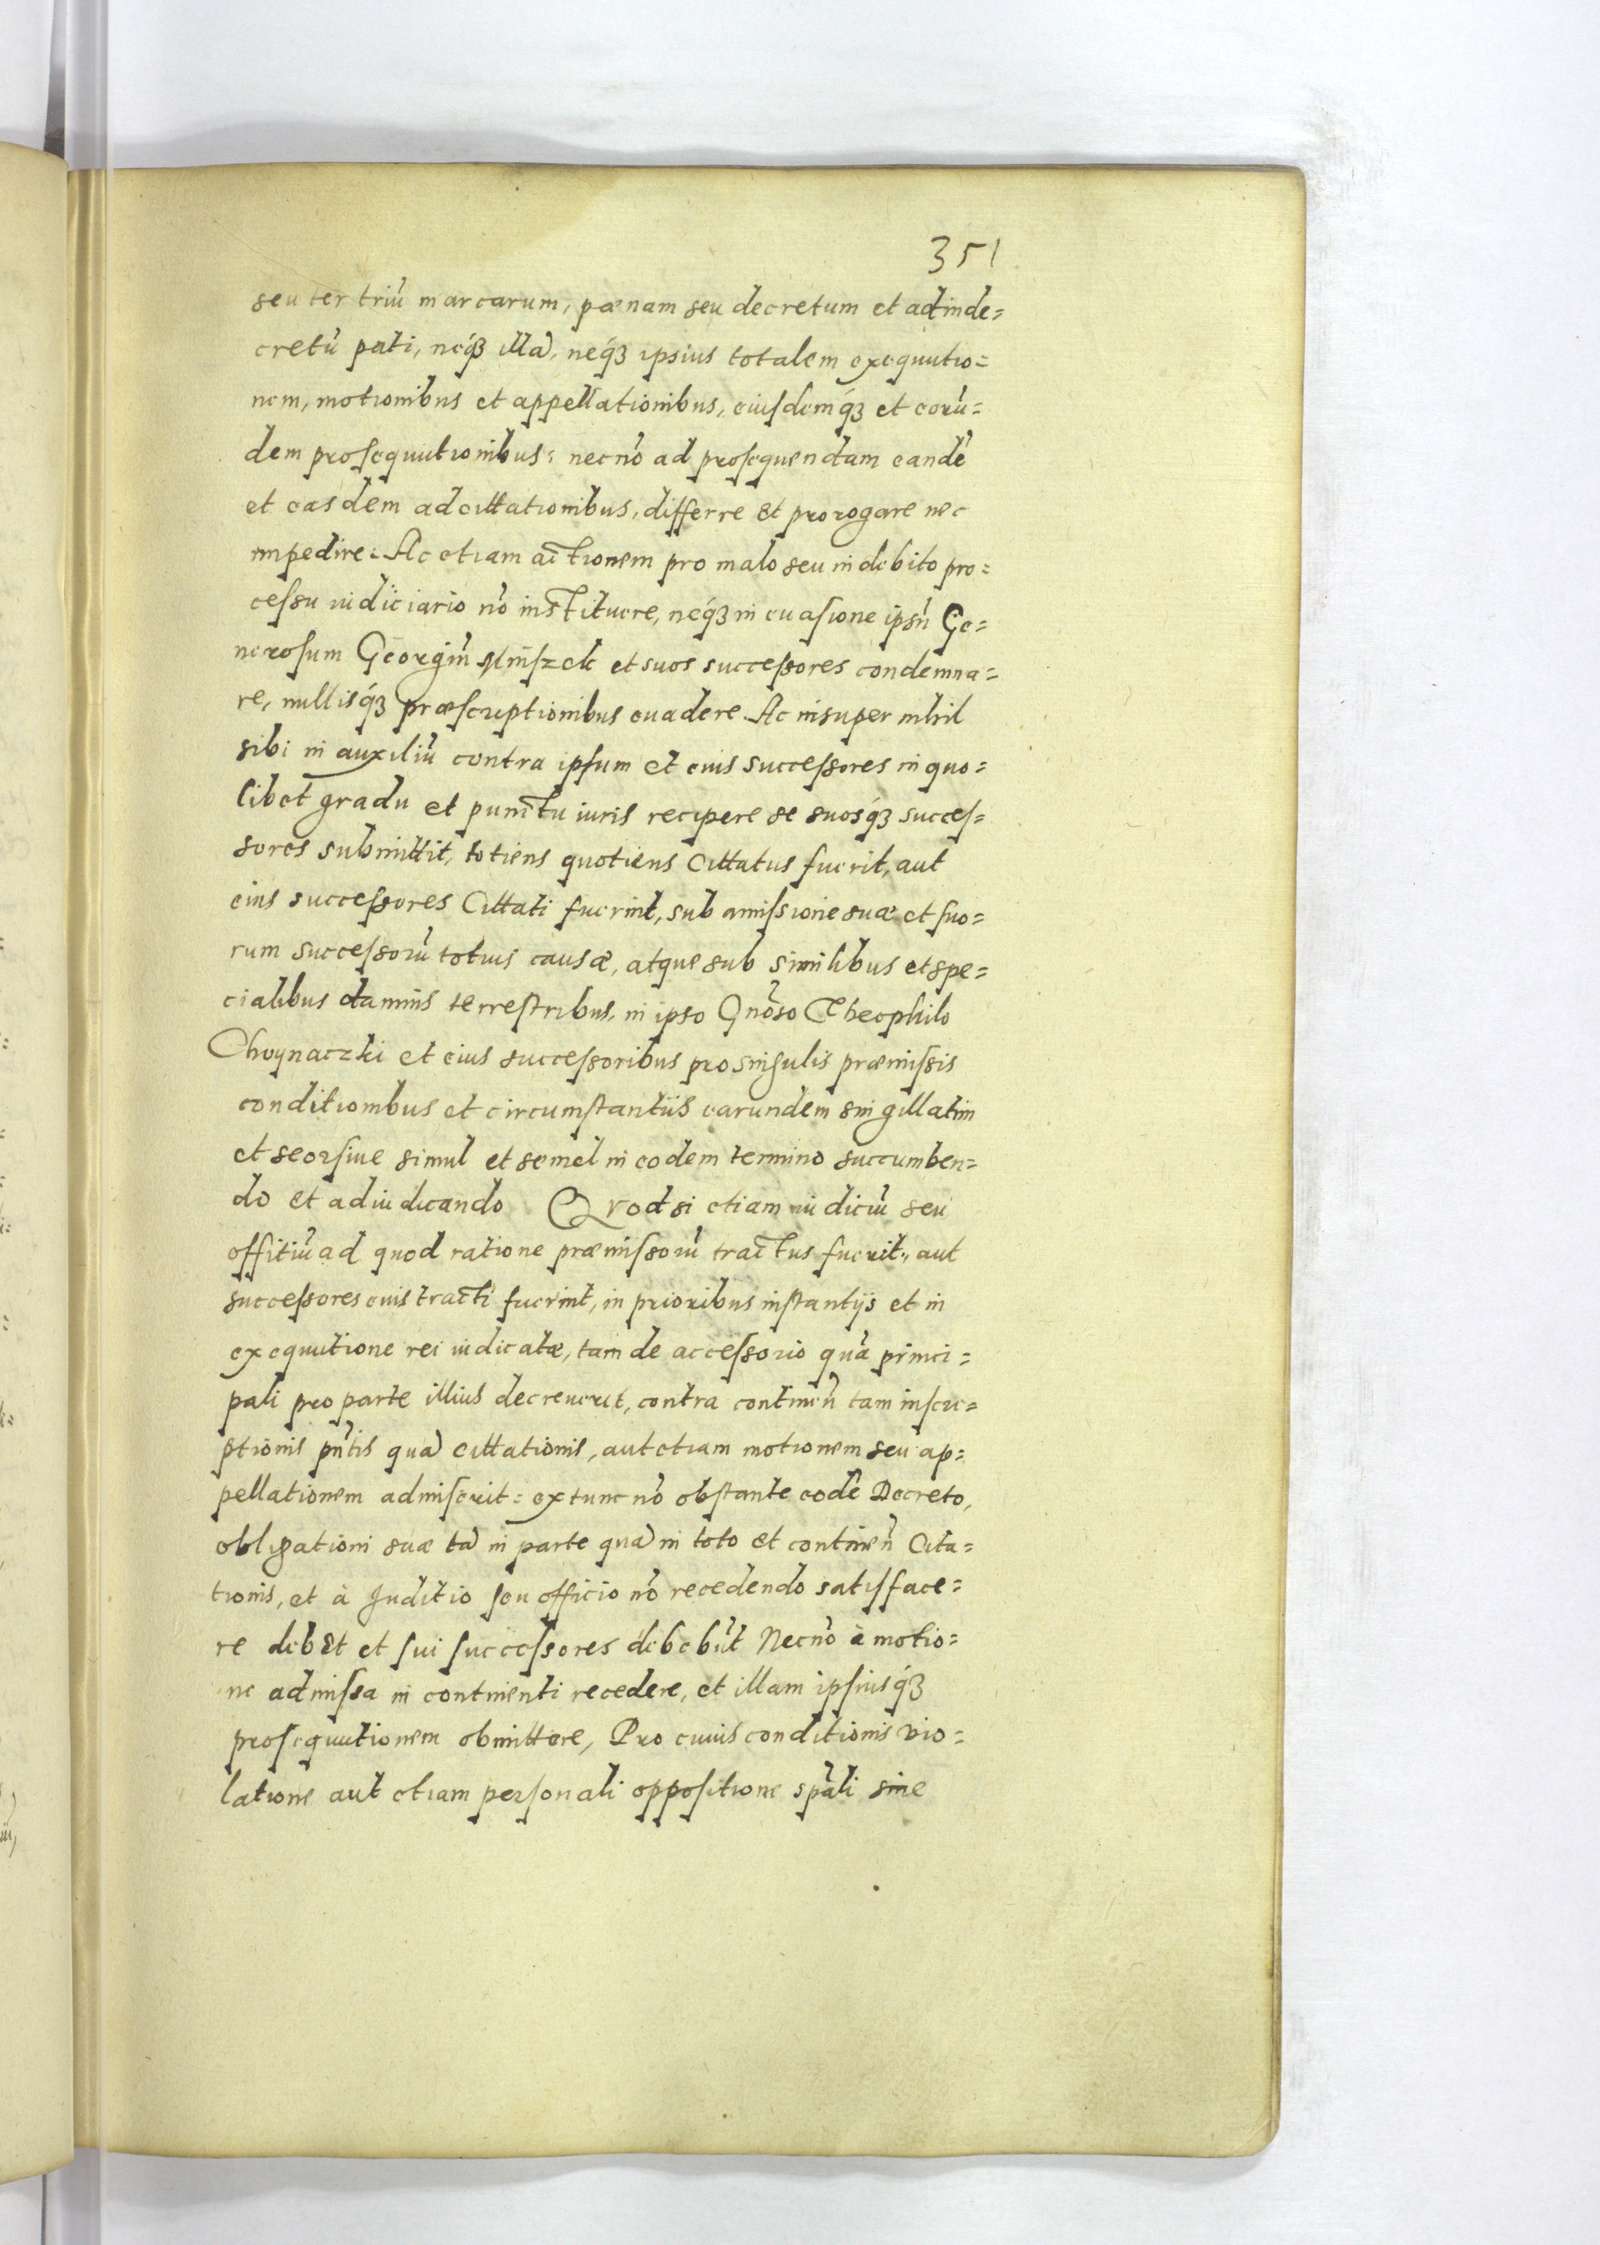 351
seu ter triū marcarum, pænam seu decretum et ad inde=
cretū pati, neq́ꝫ illā, neq́ꝫ ipsius totalem exequutio=
nem, motionibus et appellationibus, eiuſdemq́ꝫ et eorū=
dem proſequutionibus: necnō ad proſequendam eandē
et easdem adcittationibus, differre et prorogare nec
impedire. Ac etiam actionem pro malo seu indebito pro=
ceſsu iudiciario nō instituere, neq́ꝫ in euaſione ipsū Ge=
neroſum Georgiū Mniszek et suos succeſsores condemna=
re, nullisq́ꝫ præſcriptionibus euadere. Ac insuper nihil
sibi in auxiliū contra ipſum et eius succeſsores in quo=
libet gradu et punctu iuris recipere se suosq́ꝫ succeſ=
sores submittit, totiens quotiens Cittatus fuerit, aut
eius succeſsores Cittati fuerint, sub amiſsione suæ et ſuo=
rum succeſsorū totius causæ, atque sub similibus et spe=
cialibus damnis terreſtribus, in ipso Gnōso Theophilo
Choynaczki et eius succeſsoribus pro singulis præmiſsis
conditionibus et circumſtantiis earundem singillatim
et seorſiue simul et semel in eodem termino succumben=
do et adiudicando Quod si etiam iudiciū seu
offitiū ad quod ratione præmiſsorū tractus fuerit, aut
succeſsores eius tracti fuerint, in prioribus inſtantijs et in
exequutione rei iudicatæ, tam de acceſsorio quā princi=
pali pro parte illius decreuerit, contra continen̄ tam inſcri=
ptionis pn̄tis quā cittationis, aut etiam motionem seu ap=
pellationem admiſerit= extunc nō obſtante eodē Decreto,
obligationi suæ tā in parte quā in toto et continen̄ Cita=
tionis, et à Juditio ſeu officio nō recedendo satiſface=
re debet et ſui ſucceſsores debebūt Necnō à motio=
ne admiſsa in continenti recedere, et illam ipſiusq́ꝫ
proſequutionem obmittere, Pro cuius conditionis vio=
latione aut etiam perſonali oppoſitione spāli sine